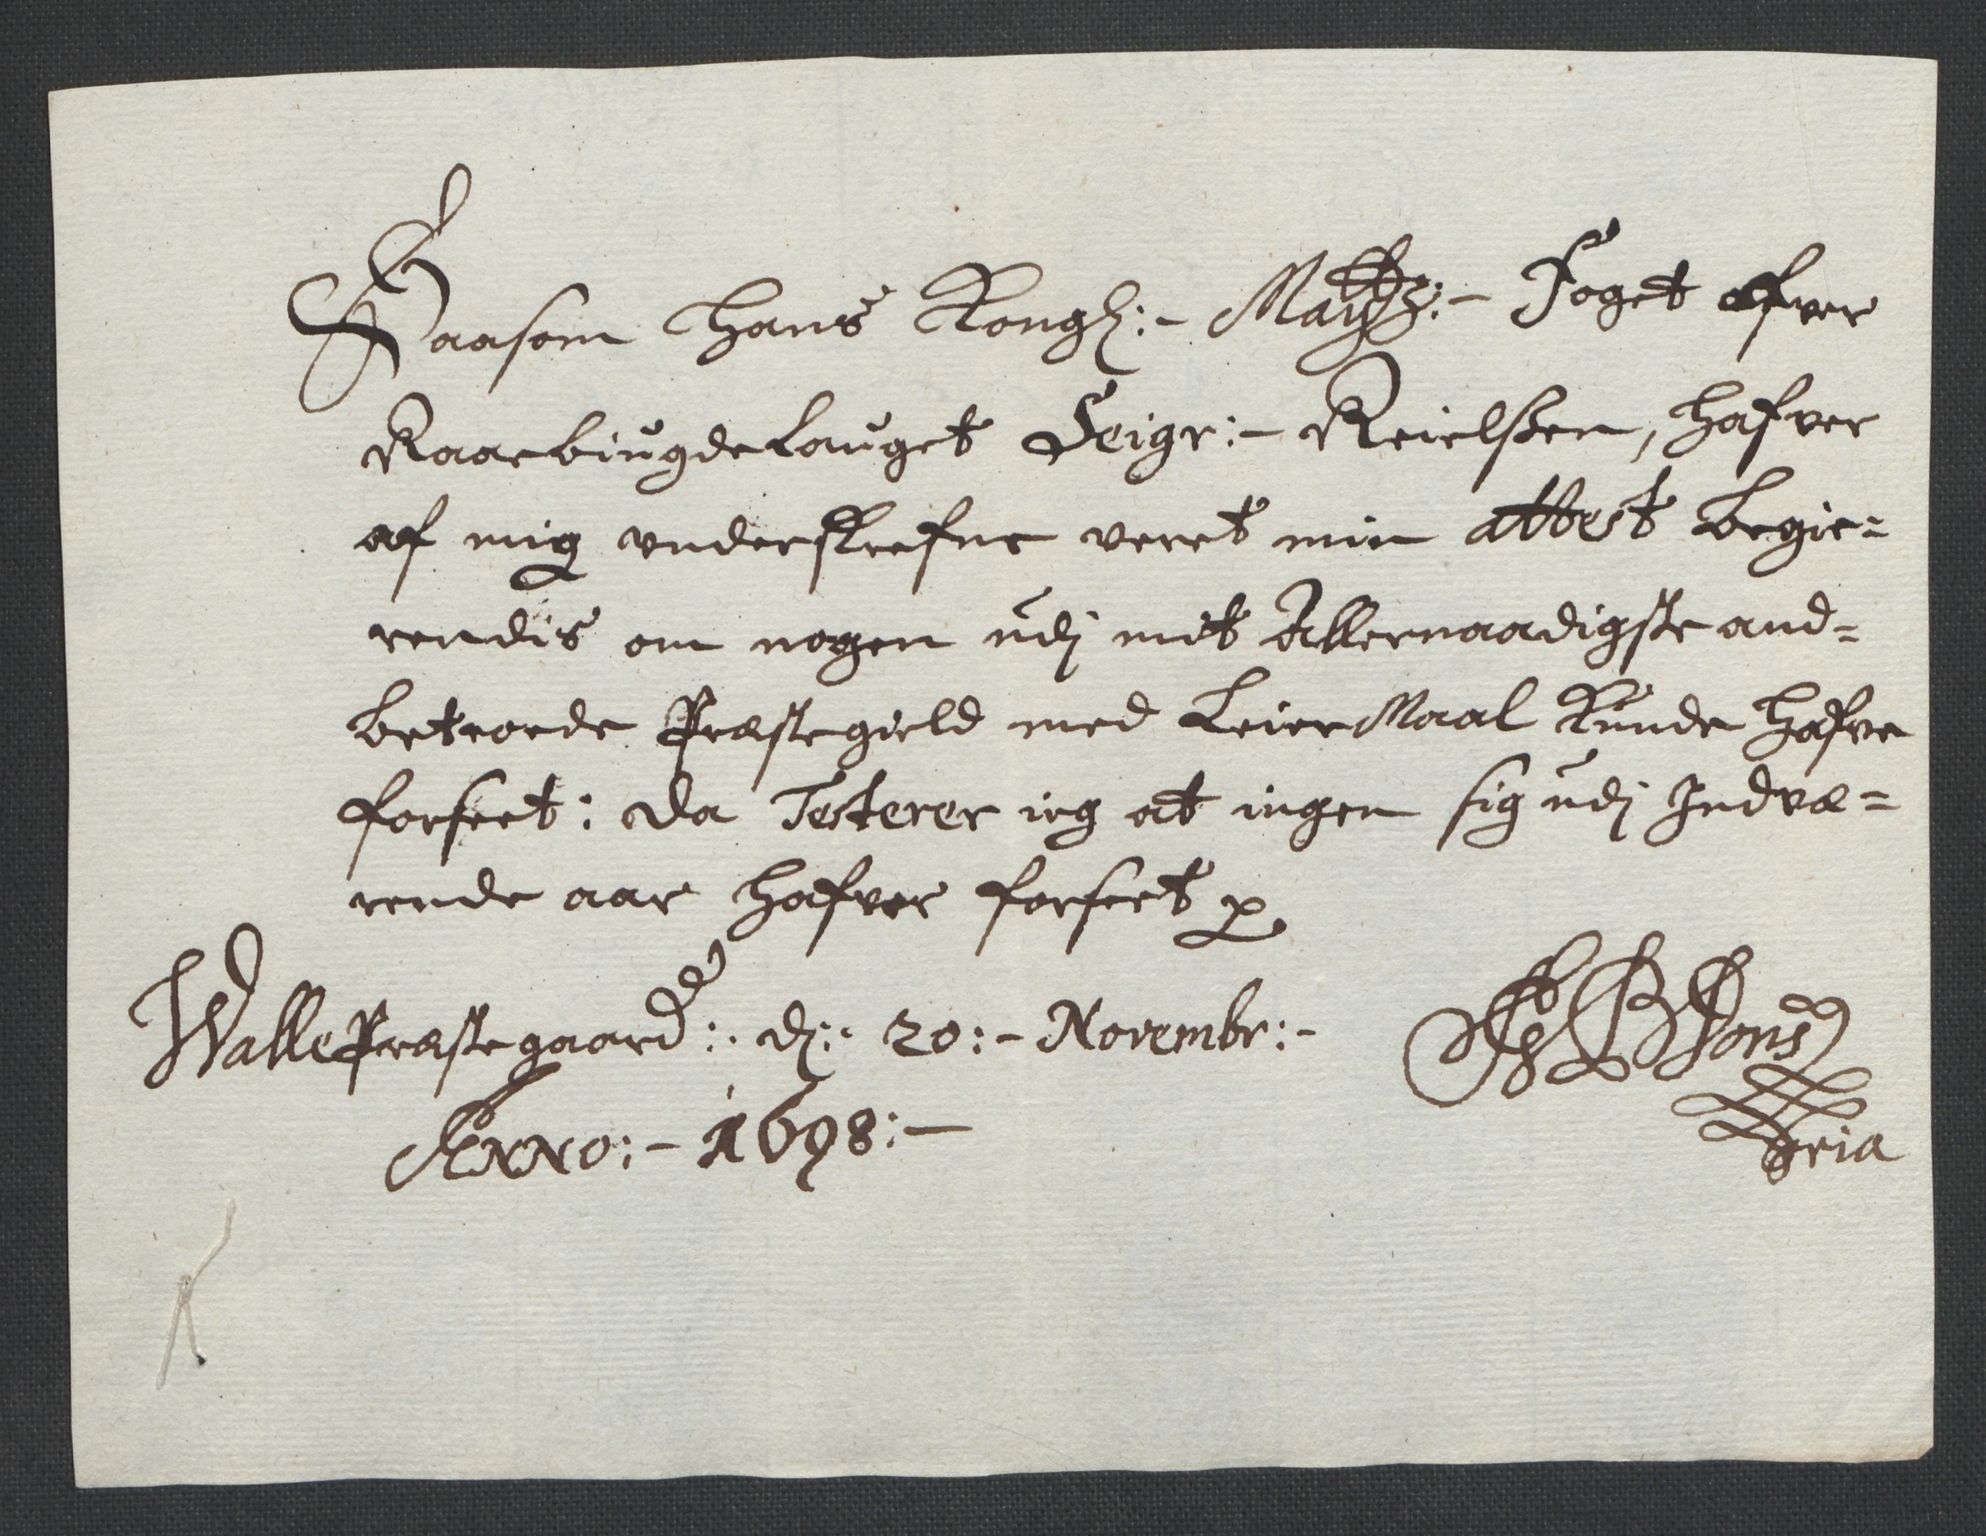 Saasom Hans Kongl:- Maÿtz:- Foget ofver
Raarbiugdelauget Seigr:- Kieielssen, hafver
af mig underskrefne veret min attest begie=
rendis om nogen udj mit Allernaadigste and=
betroede Præstegield med LeierMaal Kunde hafve
forseet: da Testerer ieg at ingen sig udj Indvæ=
rende aar hafver forseet
Walle Præstegaard: d: 20:- Novembr:-
Anno:- 1698:-